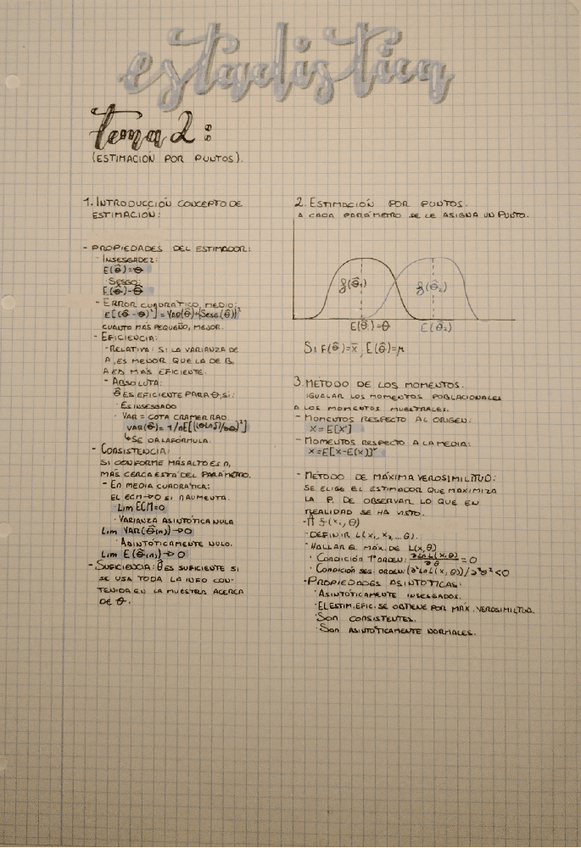 estadística
tema 2:
(ESTIMACIÓN POR PUNTOS).
1. INTRODUCCIÓN CONCEPTO DE
ESTIMACIÓN:
- PROPIEDADES DEL ESTIMADOR:
- INSESGADEZ:
E(θ̂)=θ
SESGO:
E(θ̂)-θ
- ERROR CUADRÁTICO MEDIO:
E[(θ̂-θ)²]=VAR(θ̂)+[SESG(θ̂)]²
CUANTO MÁS PEQUEÑO, MEJOR.
- EFICIENCIA:
· RELATIVA: SI LA VARIANZA DE
A, ES MENOR QUE LA DE B,
A ES MÁS EFICIENTE.
- ABSOLUTA:
θ̂ ES EFICIENTE PARA θ, SI:
· ES INSESGADO
· VAR = COTA CRAMER RAO.
↳ SE DA LA FÓRMULA.
- CONSISTENCIA:
SI CONFORME MÁS ALTO ES n,
MÁS CERCA ESTÁ DEL PARÁMETRO.
- EN MEDIA CUADRÁTICA:
EL ECM→0 SI n AUMENTA.
LIM ECM=0
· VARIANZA ASINTÓTICA NULA
LIM VAR(θ̂(n))→0
· ASINTÓTICAMENTE NULO.
LIM E(θ̂(n))→0
- SUFICIENCIA: θ̂ ES SUFICIENTE SI
SE USA TODA LA INFO CON-
TENIDA EN LA MUESTRA ACERCA
DE θ.
2. ESTIMACIÓN POR PUNTOS.
A CADA PARÁMETRO SE LE ASIGNA UN PUNTO.
f(θ̂₁) f(θ̂₂)
E(θ̂₁)=θ E(θ̂₂)
SI F(θ̂)=x̄, E(θ̂)=μ
3. MÉTODO DE LOS MOMENTOS.
IGUALAR LOS MOMENTOS POBLACIONALES
A LOS MOMENTOS MUESTRALES.
- MOMENTOS RESPECTO AL ORIGEN:
- MOMENTOS RESPECTO A LA MEDIA:
- MÉTODO DE MÁXIMA VEROSIMILITUD:
SE ELIGE EL ESTIMADOR QUE MAXIMIZA
LA P. DE OBSERVAR LO QUE EN
REALIDAD SE HA VISTO.
- Π f(xᵢ,θ)
· DEFINIR L(x₁,x₂...θ).
· HALLAR EL MÁX. DE L(x,θ)
· CONDICIÓN 1º ORDEN: ∂LnL(x,θ)/∂θ=0
· CONDICIÓN SEG. ORDEN: (∂²LnL(x,θ))/∂²θ²<0
· PROPIEDADES ASINTÓTICAS:
· ASINTÓTICAMENTE INSESGADOS.
· EL ESTIM. EFIC. SE OBTIENE POR MÁX. VEROSIMILITUD.
· SON CONSISTENTES.
· SON ASINTÓTICAMENTE NORMALES.